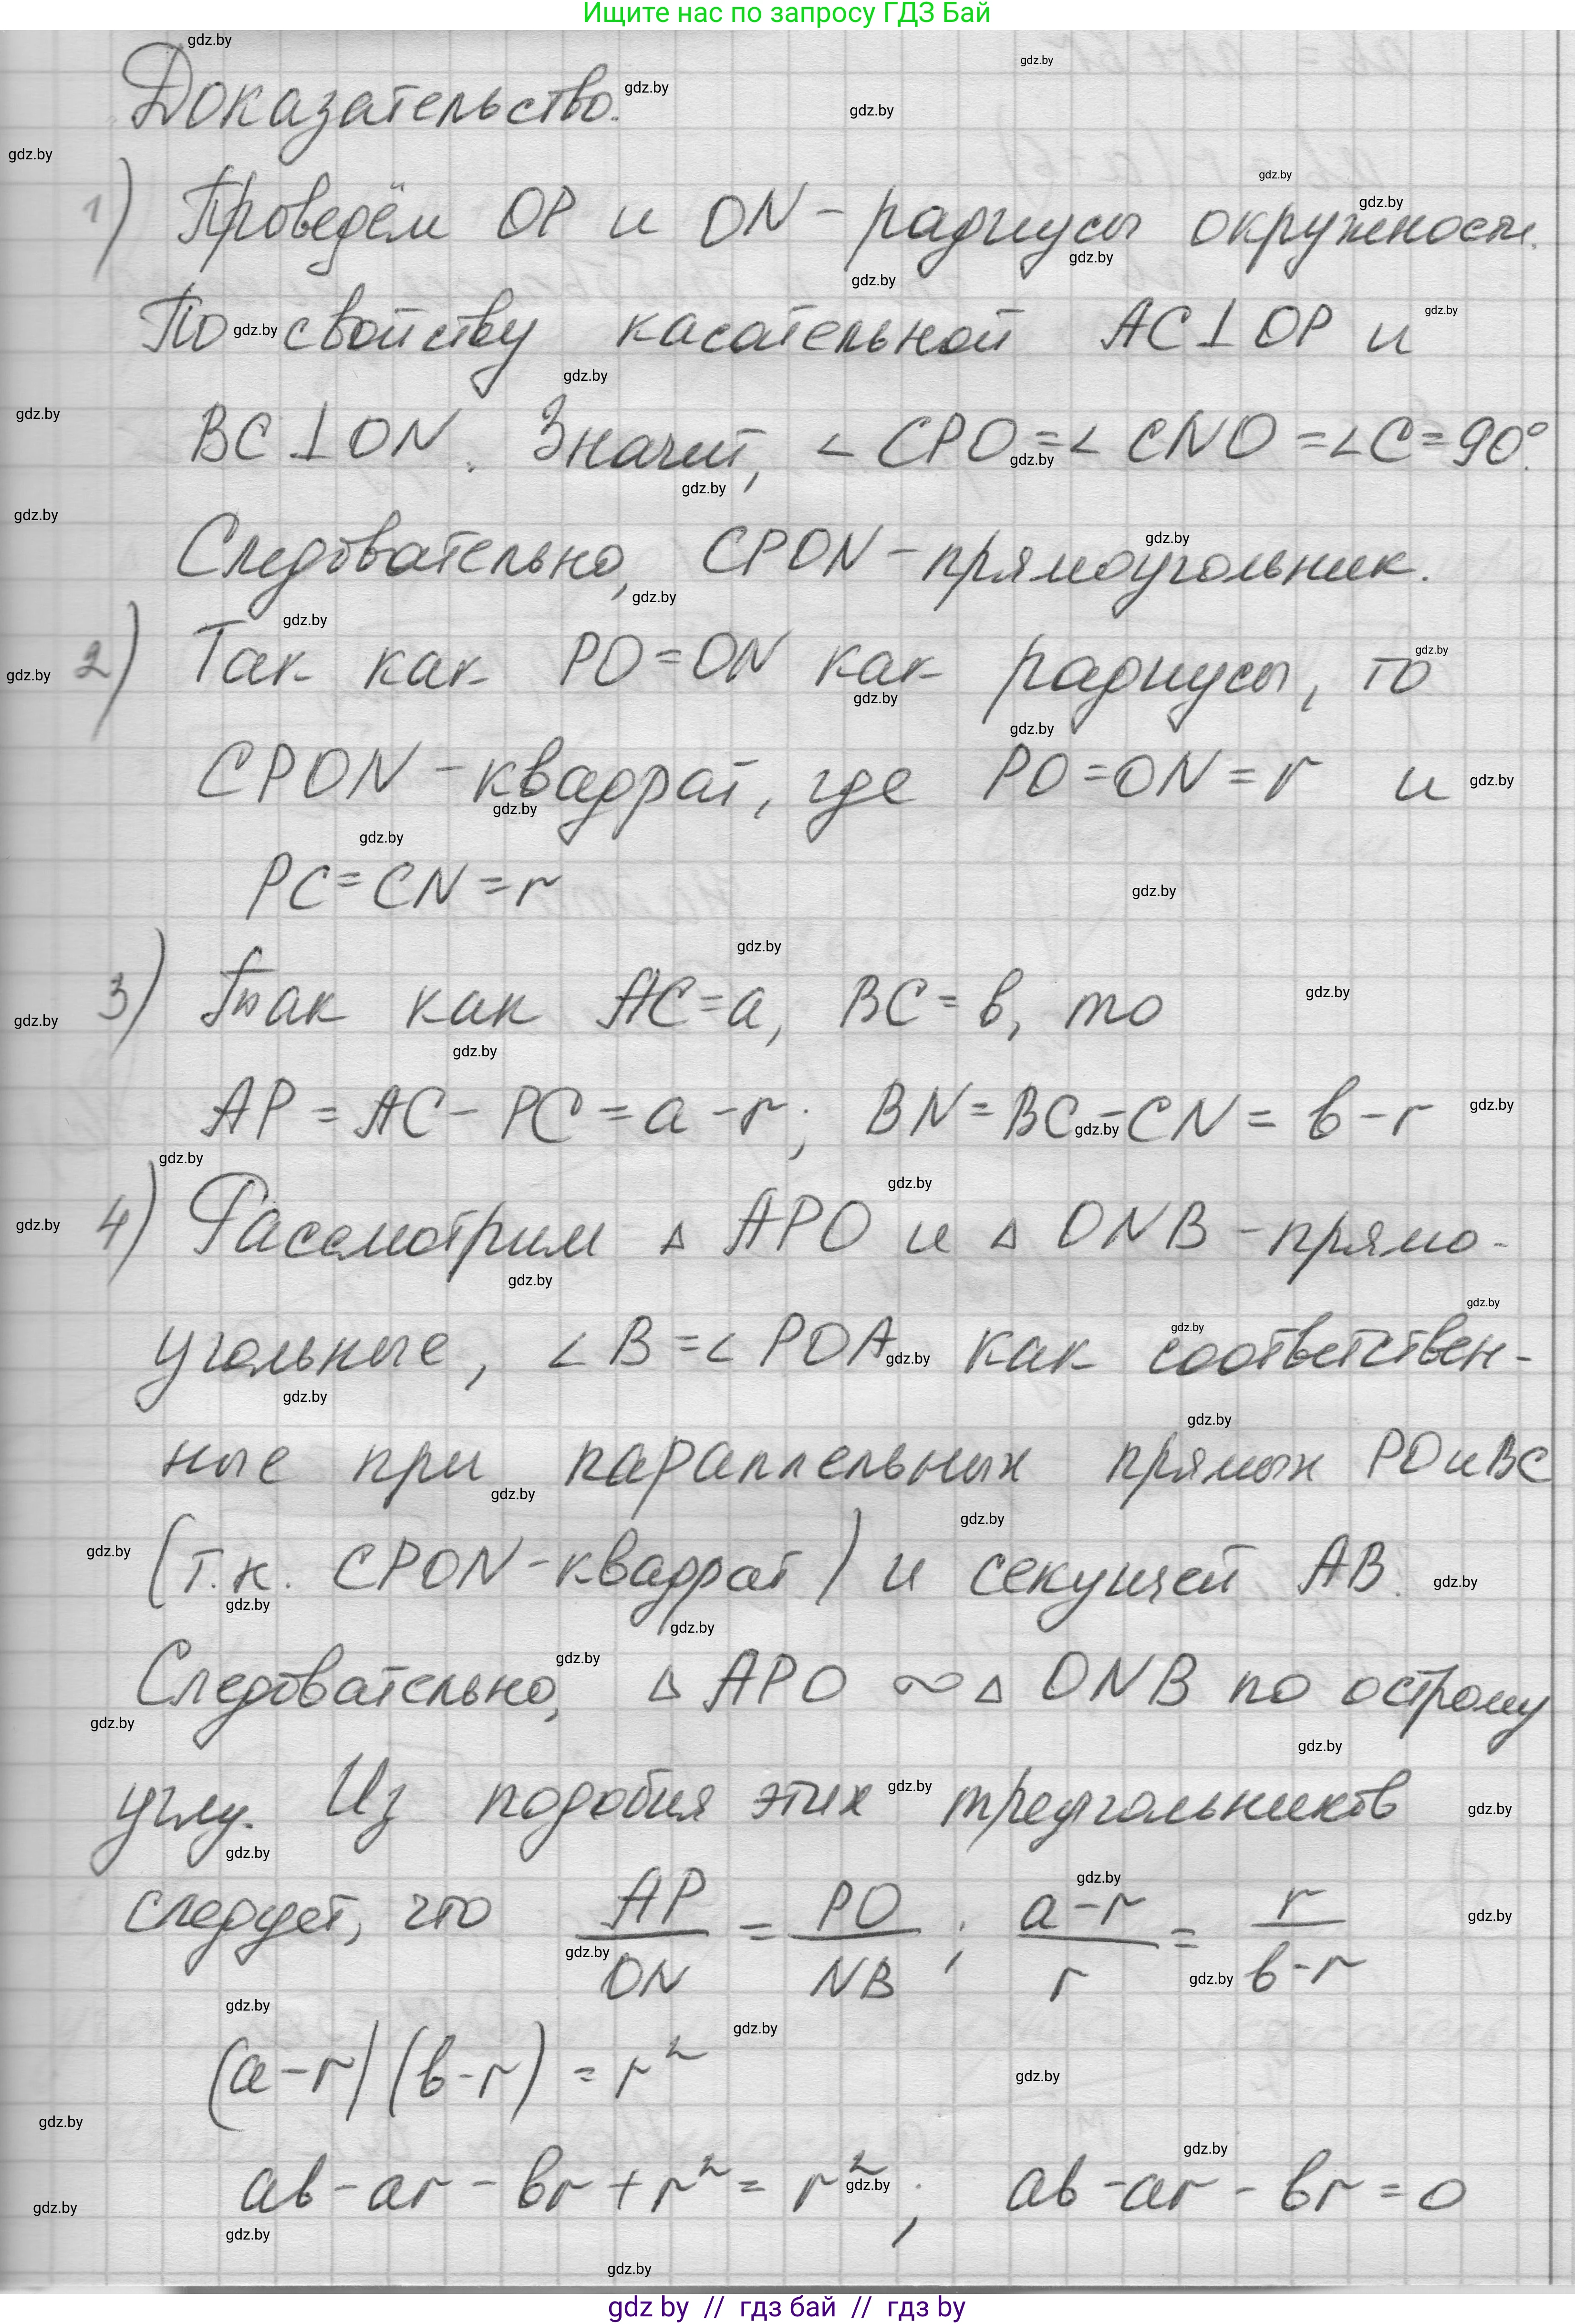 Ищите нас по запросу ГДЗ Бай
Доказательство.
1) Проведём OP и ON - радиусы окружности.
По свойству касательной AC⊥OP и
BC⊥ON. Значит, ∠CPO=∠CNO=∠C=90°.
Следовательно, CPON - прямоугольник.
2) Так как PO=ON как радиусы, то
CPON - квадрат, где PO=ON=r и
PC=CN=r
3) Так как AC=a, BC=b, то
AP=AC-PC=a-r; BN=BC-CN=b-r
4) Рассмотрим △APO и △ONB - прямо-
угольные, ∠B=∠POA как соответствен-
ные при параллельных прямых PO и BC
(т.к. CPON - квадрат) и секущей AB.
Следовательно, △APO ∾ △ONB по острому
углу. Из подобия этих треугольников
следует, что AP/ON = PO/NB; (a-r)/r = r/(b-r)
(a-r)(b-r)=r²
ab-ar-br+r²=r²; ab-ar-br=0
gdz by // гдз бай // гдз by